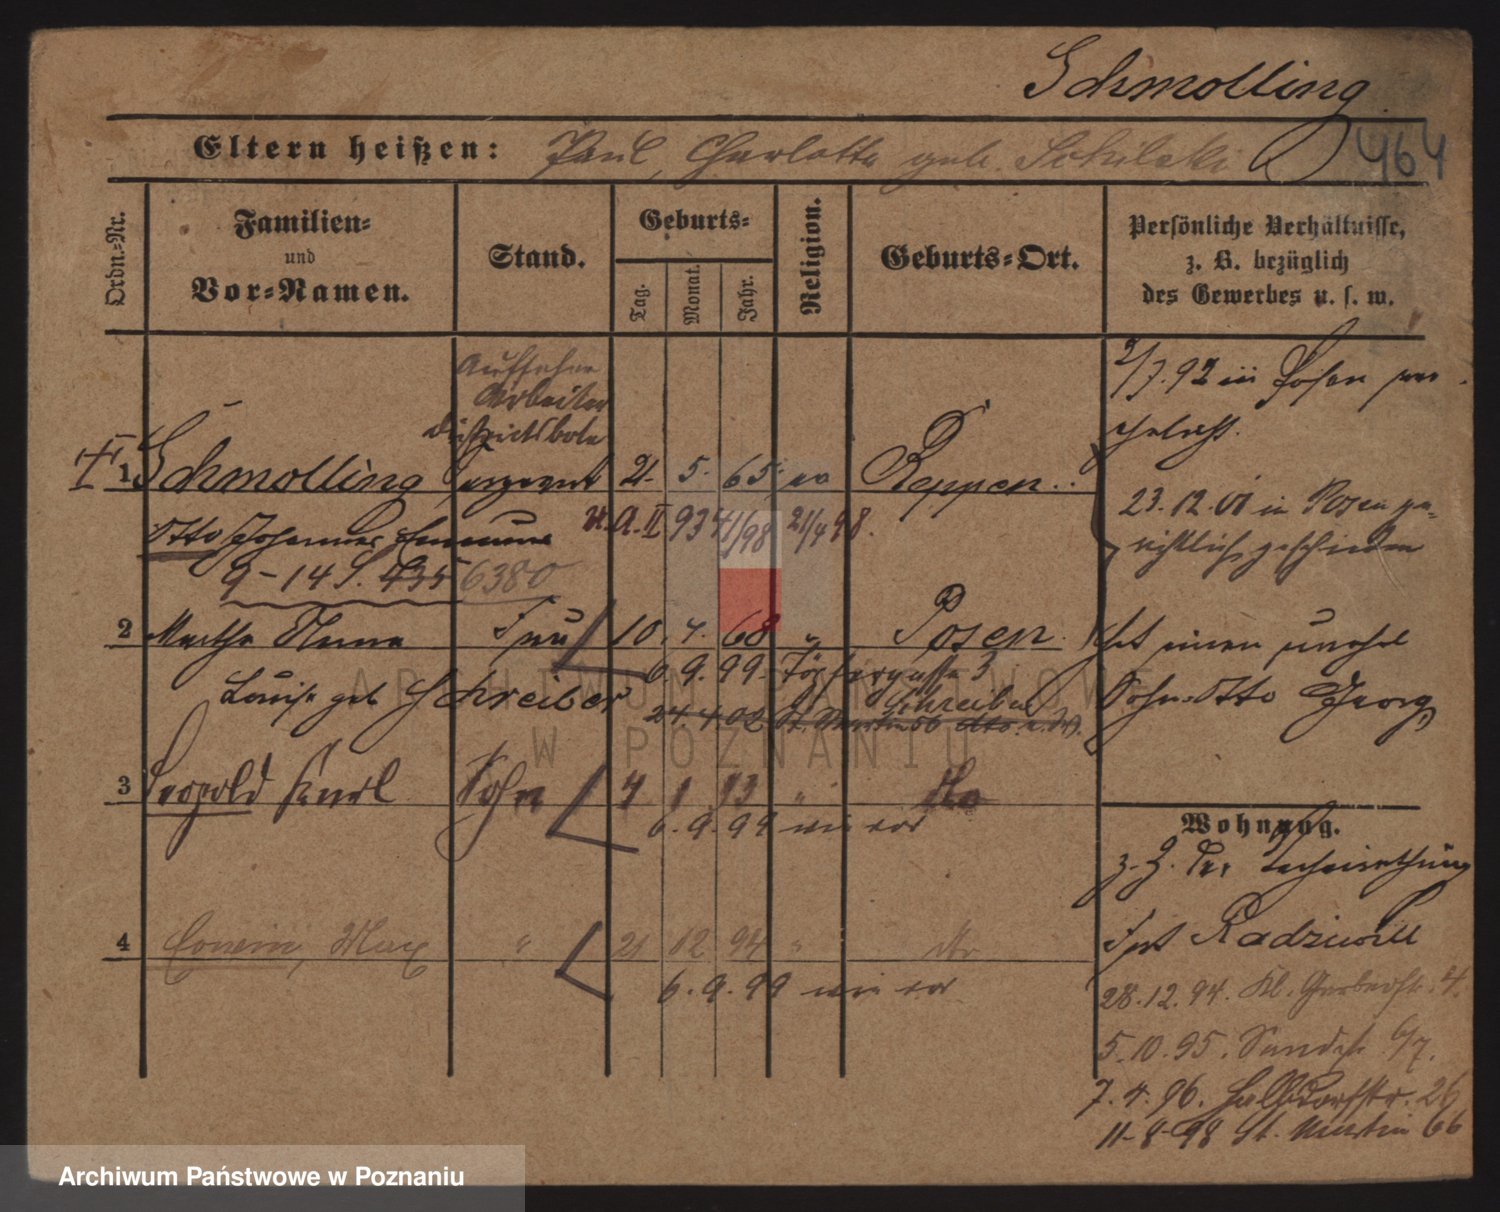 Schmolling
464
Eltern heißen: Paul, Charlotte geb.
Ordn.-Nr.
Familien-
und
Vor-Namen.
Stand.
Geburts-
Tag.
Monat.
Jahr.
Religion.
Geburts-Ort.
Persönliche Verhältnisse,
z. B. bezüglich
des Gewerbes u. s. w.
Aufseher
Arbeiter
Distriktsbote
1 Schmolling Sergeant 21. 5. 65 ev Reppen
Otto Johannes
9-14 S. 435 6380
2 Martha Frau 10. 4. 68 " Posen
6.9.99. Töpfergasse 3
Louise geb Schreiber
Schreiber
24.4.02 St. Martin 56
3 Leopold Karl Sohn 4 1 93 " dto
6.9.99 wie vor
4 Erwin, Max " 21 12 94 " dto
6.9.99 wie vor
2/7.92 in Posen ver-
ehelicht.
23.12.01 in Posen ge-
richtlich geschieden
Hat einen unehel
Sohn Otto Georg
Wohnung.
z. Z.
Fort Radziwill
28.12.94. Kl. Gerberstr. 4.
5.10.95. Sandstr. 6/7.
7.4.96. Halbdorfstr. 26
11-8-98 St. Martin 66
ARCHIWUM PAŃSTWOWE
W POZNANIU
Archiwum Państwowe w Poznaniu